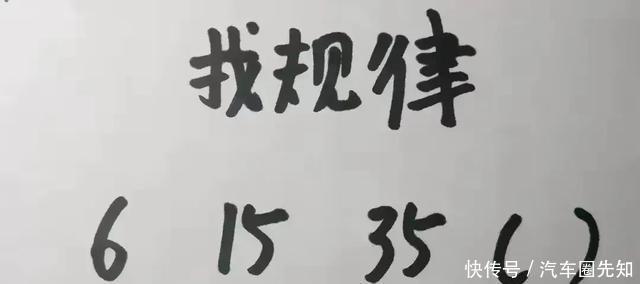 找规律
6 15 35 ( )
快传号 / 汽车圈先知